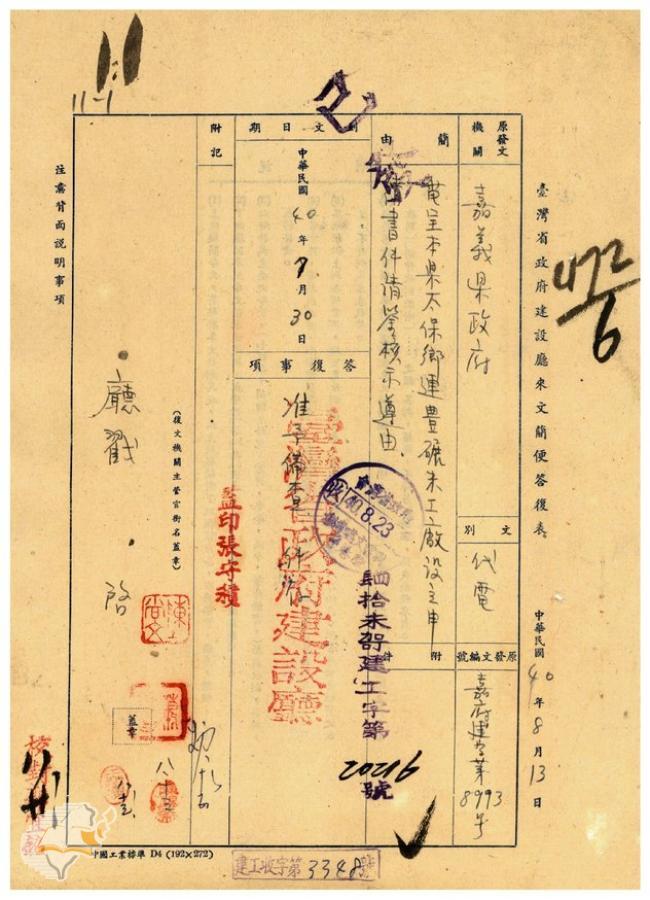 臺灣省政府建設廳來文簡便答復表
中華民國40年8月13日
原發文機關
嘉義県政府
文別
代電
原發文編號
嘉府建字第8993号
簡由
電呈本県太保鄉連豊碾米工廠設立申
請書件請鑒核示遵由
附件
到文日期
中華民國40年7月30日
答復事項
准予備查
臺灣省政府建設廳
40.8.23
建工字第
號
監印張守積
附記
(復文機關主管官銜名蓋章)
廳戳 啓
蓋章
注意背面說明事項
中國工業標準 D4 (192×272)
建工收字第3348號
11-1